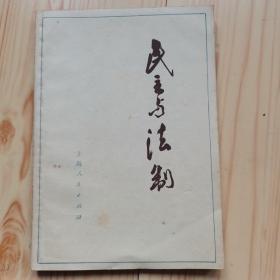 民主与法制
上海人民出版社